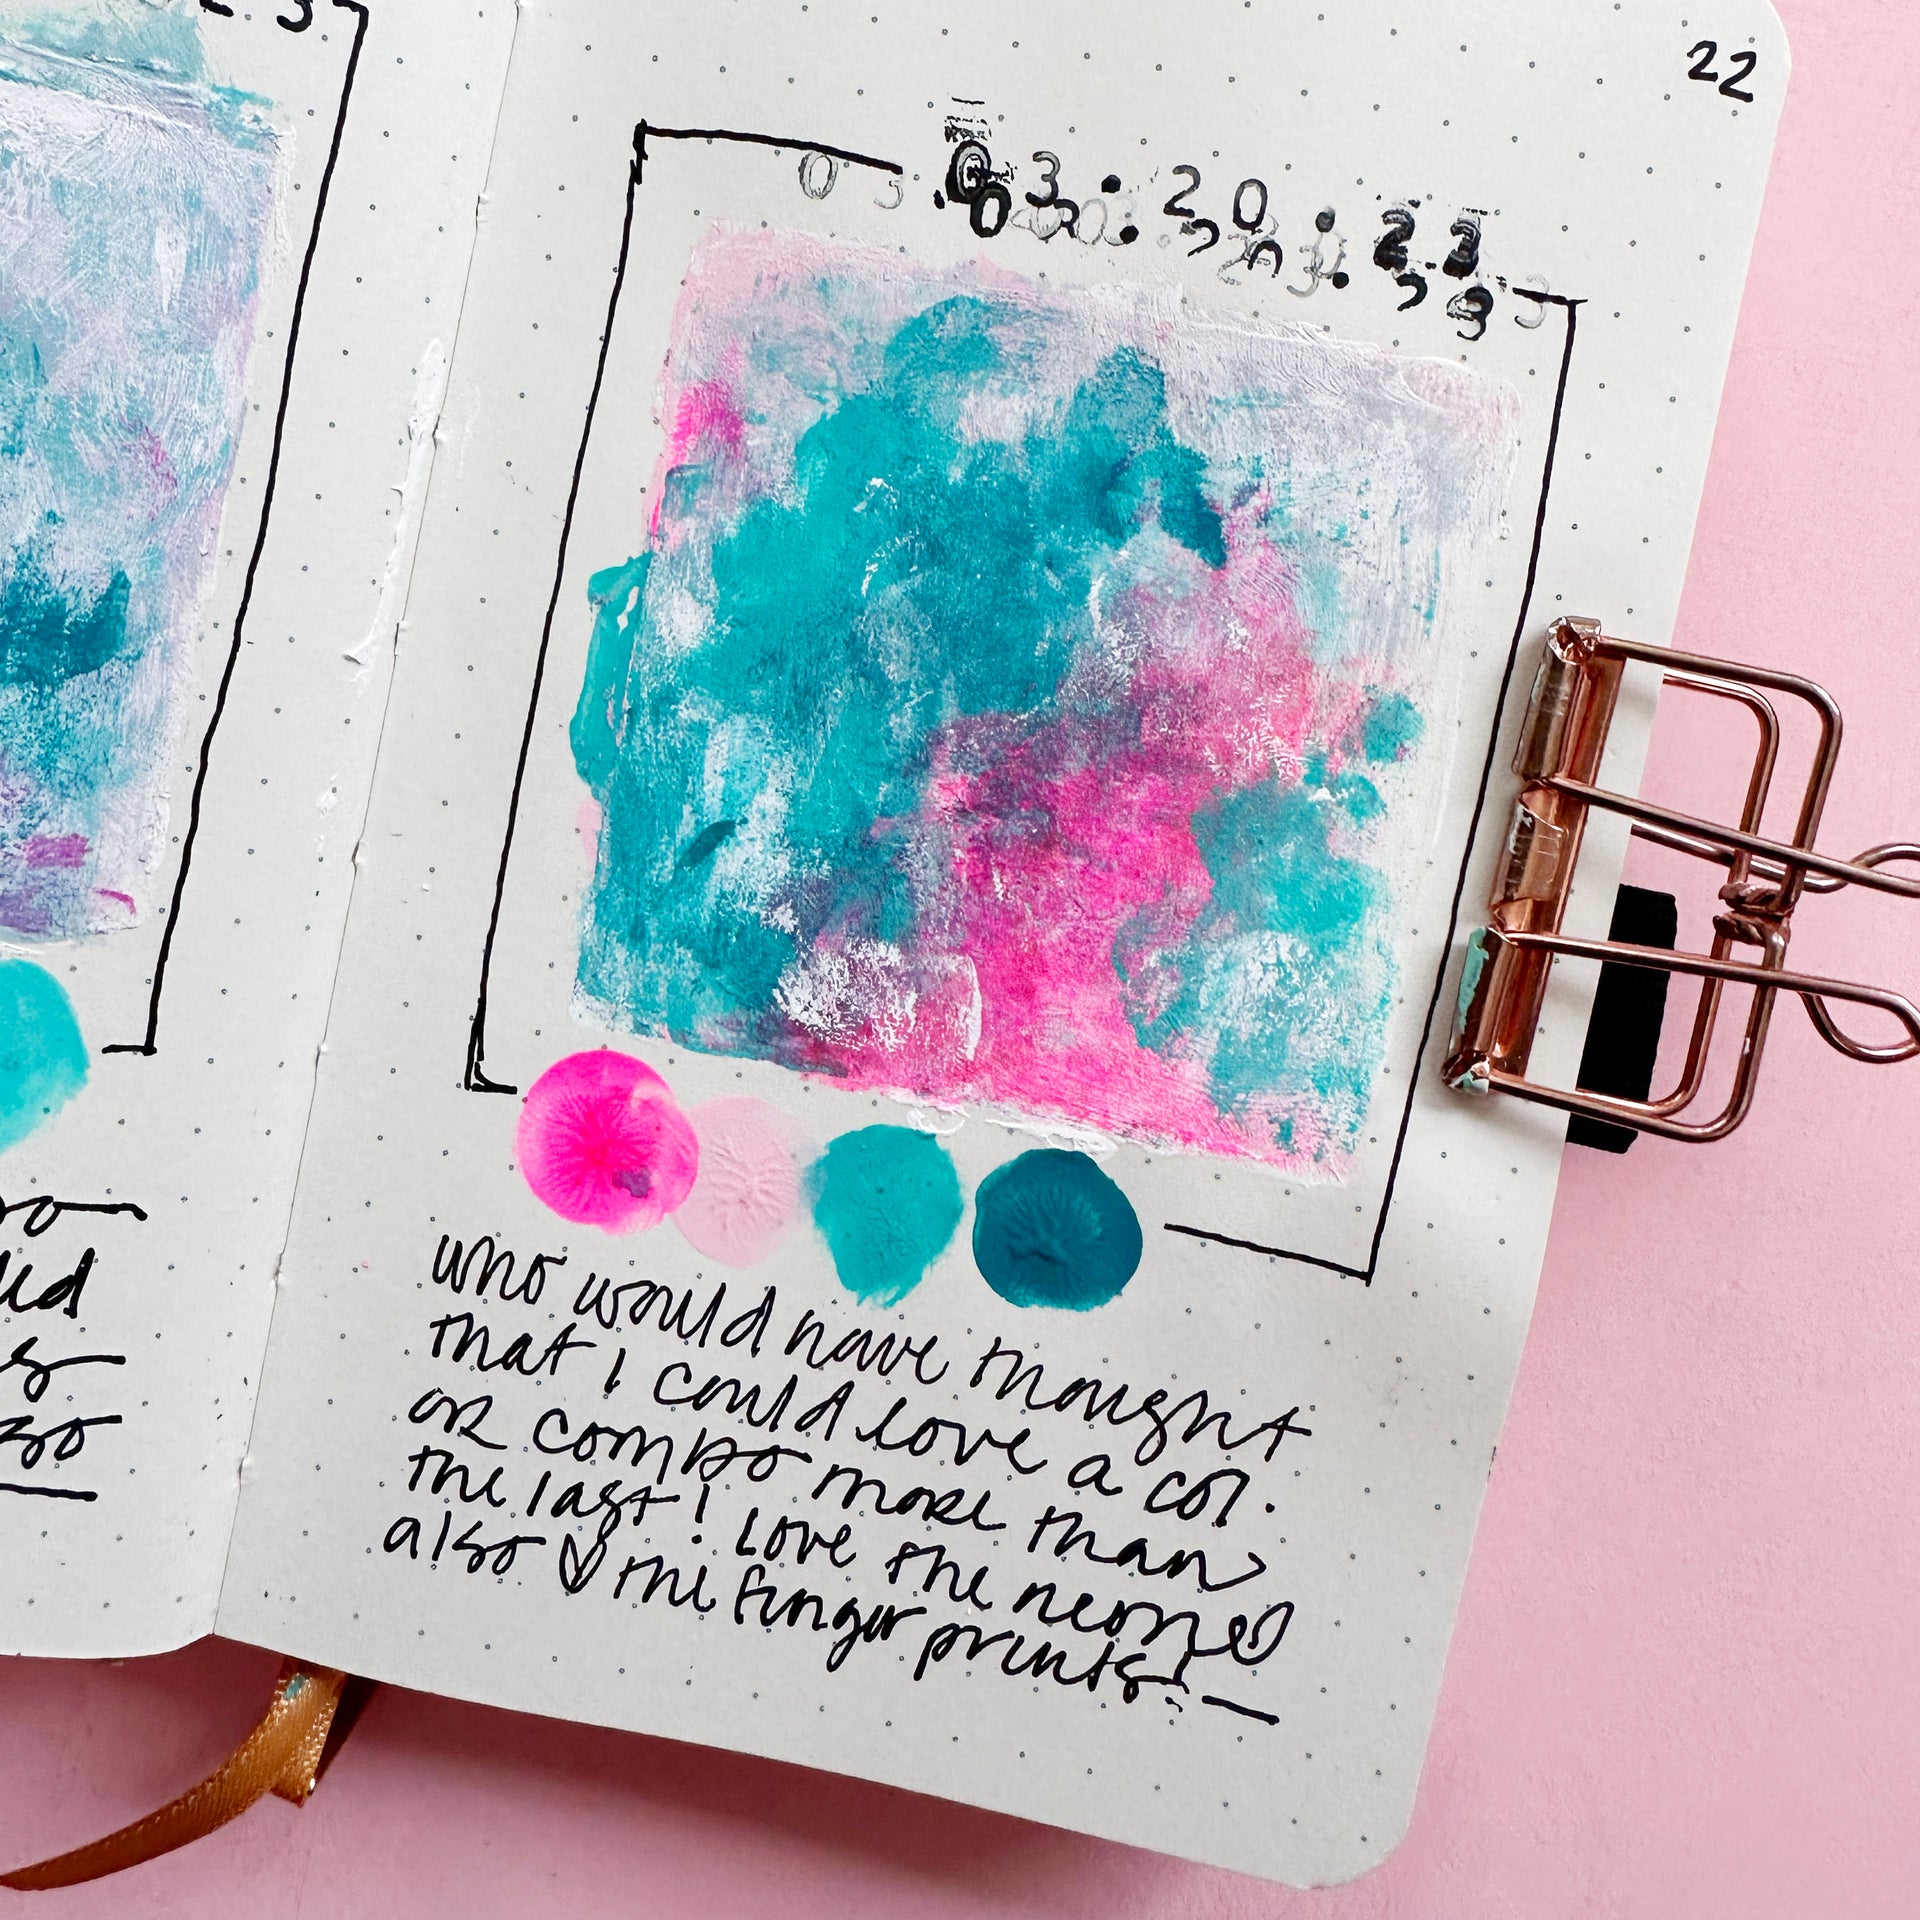 22
03.20.23
who would have thought
that I could love a col.
or combo more than
the last! Love the neon ♡
also ♡ the finger prints! —